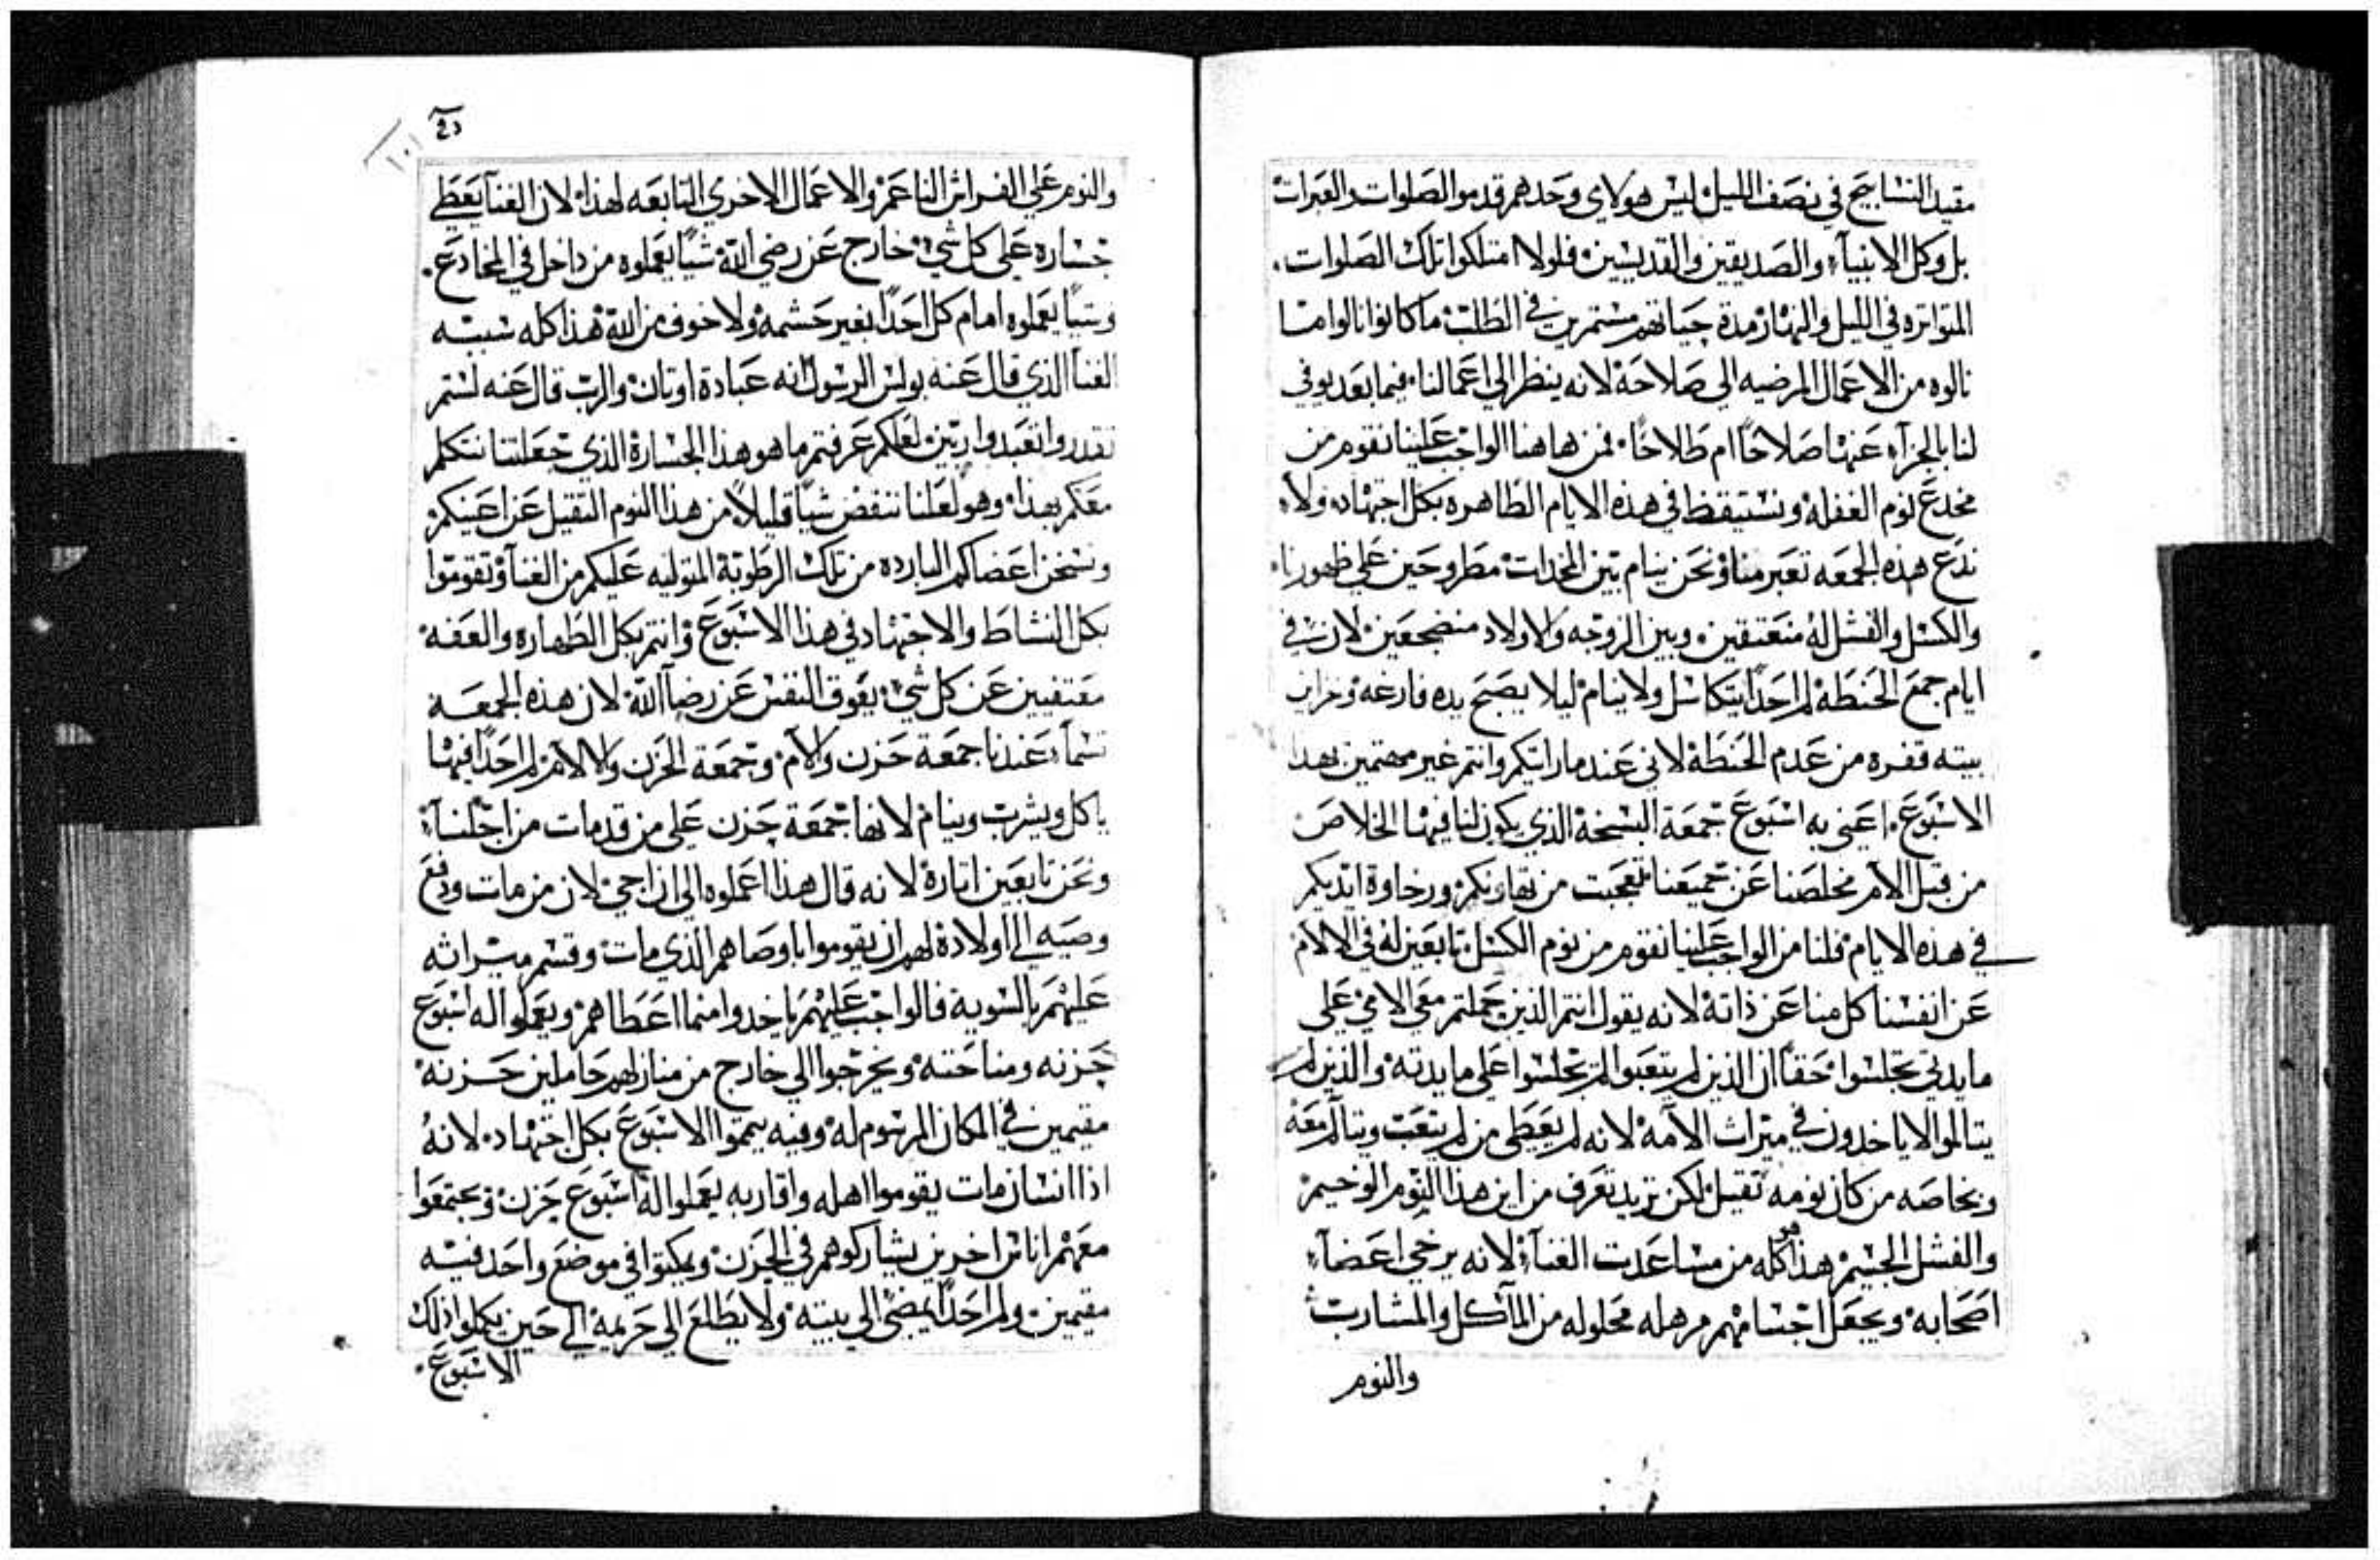 مقيد التسابيح في نصف الليل ليس هولاي وحدهم قدموا الصلوات والعبرات
بل وكل الانبيآء والصديقين والقديسين فلولا امتلكوا تلك الصلوات
المتواتره في الليل والنهار مدة حياتهم مستمرين في الطلب ما كانوا نالوا ما
نالوه من الاعمال المرضيه الي صلاحة لانه ينظر الي اعمالنا فيما بعد يوفي
لنا بالجزآء عنها صلاحًا ام طلاحًا فمن هاهنا الواجب علينا نقوم من
مخدع نوم الغفله ونستيقظ في هذه الايام الطاهره بكل اجتهاد ولا
ندع هذه الجمعه تعبر منا ونحن نيام بين المخدات مطروحين علي ظهورنا
والكسل والفشل له متعتقين وبين الزوجه والاولاد منضجعين لان في
ايام جمع الحنطة لم احدًا يتكاسل ولا ينام ليلا يصبح يده فارغه وخزاين
بيته قفره من عدم الحنطة لاني عند ما رايتكم وانتم غير مهتمين بهدا
الاسبوع اعني به اسبوع جمعة البسخة الذي يكون لنا فيها الخلاص
من قبل الآم مخلصنا عن جميعنا فتعجبت من تهاونكم ورخاوة ايديكم
في هذه الايام قلنا من الواجب علينا نقوم من نوم الكسل تابعين له في الالام
عن انفسنا كل منا عن ذاتة لانه يقول انتم الذين حملتم معي الامي علي
مايدتي تجلسوا حقًا ان الذين لم يتعبوا لم يجلسوا علي مايدته والذين لم
يتالموا لا ياخدون في ميراث الآمه لانه لم يعطي من لم يتعب ويتآلم معه
وبخاصه من كان نومه تقيل لكن نريد نعرف من اين هذا النوم الوخيم
والفشل الجسيم هذا هو كله من مساعدت الغنآء لانه يرخي اعضآء
اصحابه ويجعل اجسامهم مرهله محلوله من المآكل والمشارب
والنوم
١٠١
والنوم علي الفراش الناعم والاعمال الاخري التابعه لهذا لان الغنآ يعطي
جساره علي كل شي خارج عن رضي الله شيًا يعملوه من داخل في المخادع
وشيًا يعملوه امام كل احدًا بغير حشمه ولا خوف من الله هذا كله سببه
الغنآ الذي قال عنه بولس الرسول انه عبادة اوتان والرب قال عنه لستم
تقدروا تعبدوا ربين لعلكم عرفتم ما هو هذا الجسارة الذي جعلتنا نتكلم
معكم بهذا وهو لعلنا ننفض شيًا قليلًا من هذا النوم التقيل عن اعينكم
ونسخن اعضاكم البارده من تلك الرطوبة المتوليه عليكم من الغنآ وتقوموا
بكل النشاط والاجتهاد في هذا الاسبوع وانتم بكل الطهاره والعفه
معتفيين عن كل شي يعوق النفس عن رضآ الله لان هذه الجمعه
تسمآ عندنا جمعة حزن والآم وجمعة الحزن والالام لم احدًا فيها
ياكل ويشرب وينام لانها جمعة حزن علي من قد مات من اجلنآء
ونحن تابعين اتارة لانه قال هذا اعملوه الي ان اجي لان من مات ودفع
وصيه الي اولادة لهم ان يقوموا باوصاهم الذي مات وقسم ميراثه
عليهم بالسويه فالواجب عليهم ياخدوا منها اعطاهم ويعملوا له اسبوع
حزنه ومناحته ويخرجوا الي خارج من منازلهم حاملين حزنه
مقيمين في المكان المرسوم له وفيه يتموا الاسبوع بكل اجتهاد لانه
اذا انسان مات يقوموا اهله واقاربه يعملوا له اسبوع حزن ويجتمعوا
معهم اناس اخرين يشاركوهم في الحزن ويمكتوا في موضع واحد فيه
مقيمين ولم احدًا يمضي الي بيته ولا يطلع الي حريمه الي حين يكملوا ذلك
الاسبوع